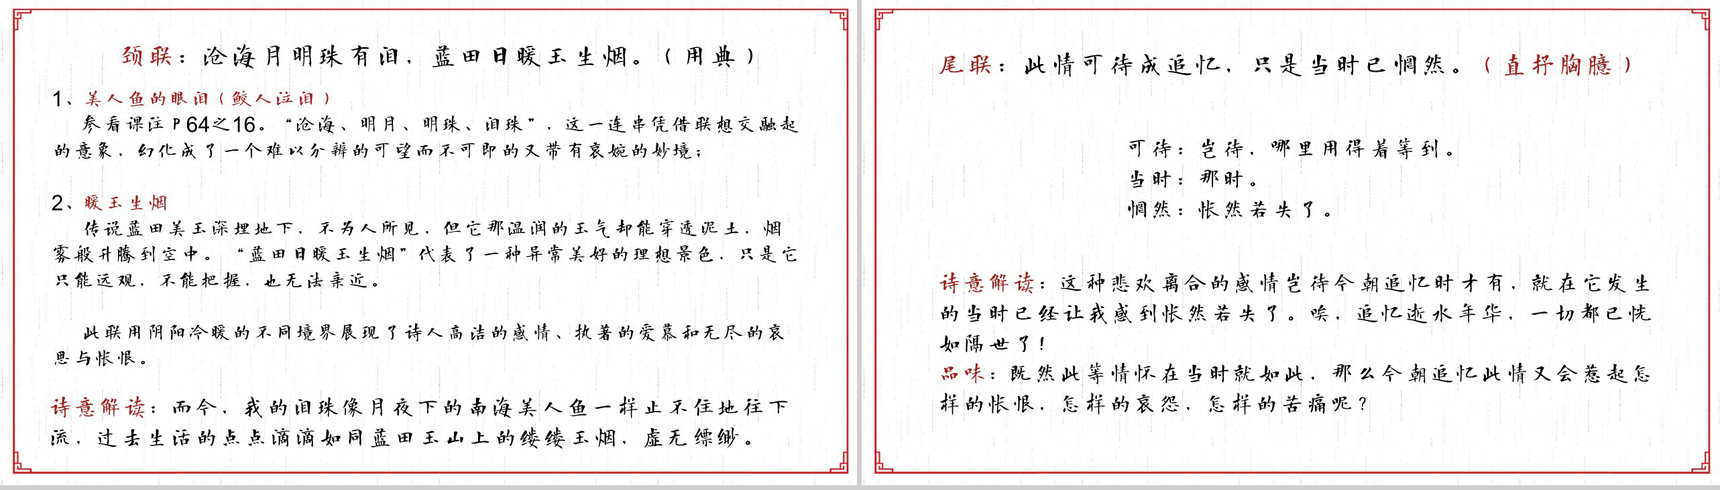 颈联：沧海月明珠有泪，蓝田日暖玉生烟。（用典）
1、美人鱼的眼泪（鲛人泣泪）
参看课注P64之16。“沧海、明月、明珠、泪珠”，这一连串凭借联想交融起
的意象，幻化成了一个难以分辨的可望而不可即的又带有哀婉的妙境；
2、暖玉生烟
传说蓝田美玉深埋地下，不为人所见，但它那温润的玉气却能穿透泥土，烟
雾般升腾到空中。“蓝田日暖玉生烟”代表了一种异常美好的理想景色，只是它
只能远观，不能把握，也无法亲近。
此联用阴阳冷暖的不同境界展现了诗人高洁的感情、执著的爱慕和无尽的哀
思与怅恨。
诗意解读：而今，我的泪珠像月夜下的南海美人鱼一样止不住地往下
流，过去生活的点点滴滴如同蓝田玉山上的缕缕玉烟，虚无缥缈。
尾联：此情可待成追忆，只是当时已惘然。（直抒胸臆）
可待：岂待，哪里用得着等到。
当时：那时。
惘然：怅然若失了。
诗意解读：这种悲欢离合的感情岂待今朝追忆时才有，就在它发生
的当时已经让我感到怅然若失了。唉，追忆逝水年华，一切都已恍
如隔世了！
品味：既然此等情怀在当时就如此，那么今朝追忆此情又会惹起怎
样的怅恨，怎样的哀怨，怎样的苦痛呢？